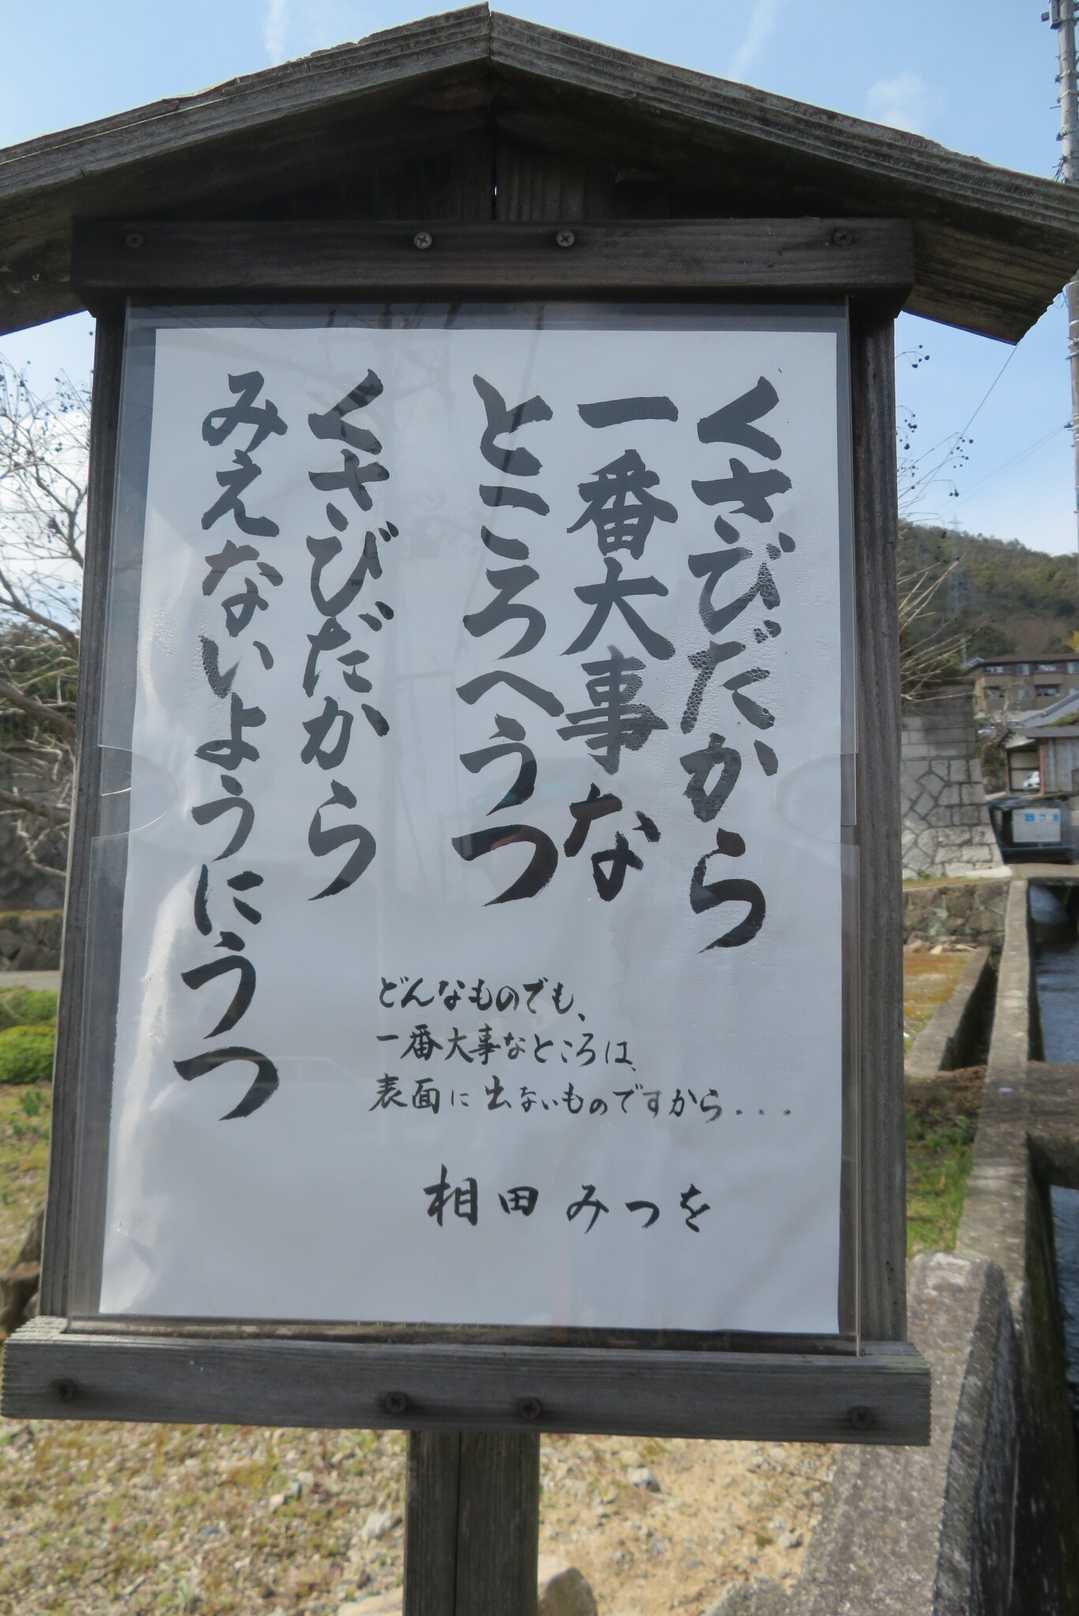 くさびだから
一番大事な
ところへうつ
くさびだから
みえないようにうつ
どんなものでも、
一番大事なところは、
表面に出ないものですから...
相田みつを